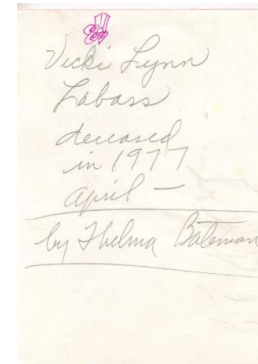 Vicki Lynn
Labass
deceased
in 1977
April —
by Thelma Bateman